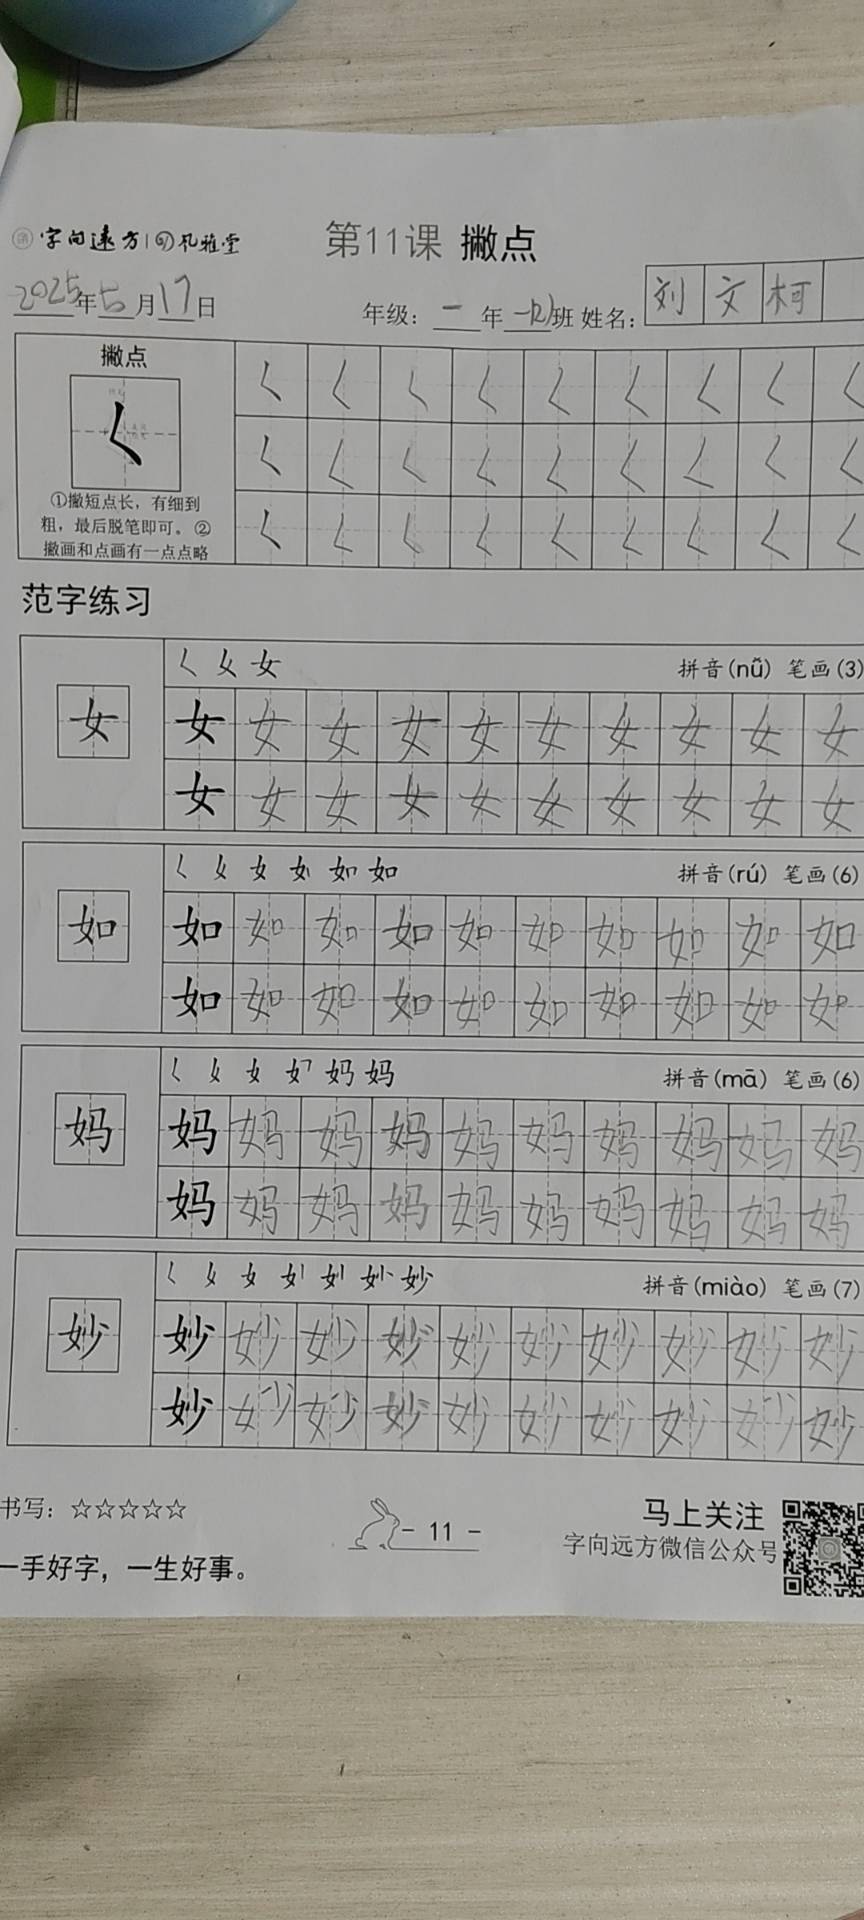 字向远方 孔雅堂
第11课 撇点
2025年5月17日
年级：一年 班 姓名：刘文柯
撇点
①撇短点长，有细到
粗，最后脱笔即可。②
撇画和点画有一点点略
范字练习
拼音(nǚ) 笔画(3)
女 女 女 女 女 女 女 女 女 女 女
女 女 女 女 女 女 女 女 女 女
拼音(rú) 笔画(6)
如 如 如 如 如 如 如 如 如 如 如
如 如 如 如 如 如 如 如 如 如
拼音(mā) 笔画(6)
妈 妈 妈 妈 妈 妈 妈 妈 妈 妈 妈
妈 妈 妈 妈 妈 妈 妈 妈 妈 妈
拼音(miào) 笔画(7)
妙 妙 妙 妙 妙 妙 妙 妙 妙 妙 妙
妙 妙 妙 妙 妙 妙 妙 妙 妙 妙
书写：☆☆☆☆☆
- 11 -
马上关注
字向远方微信公众号
一手好字，一生好事。